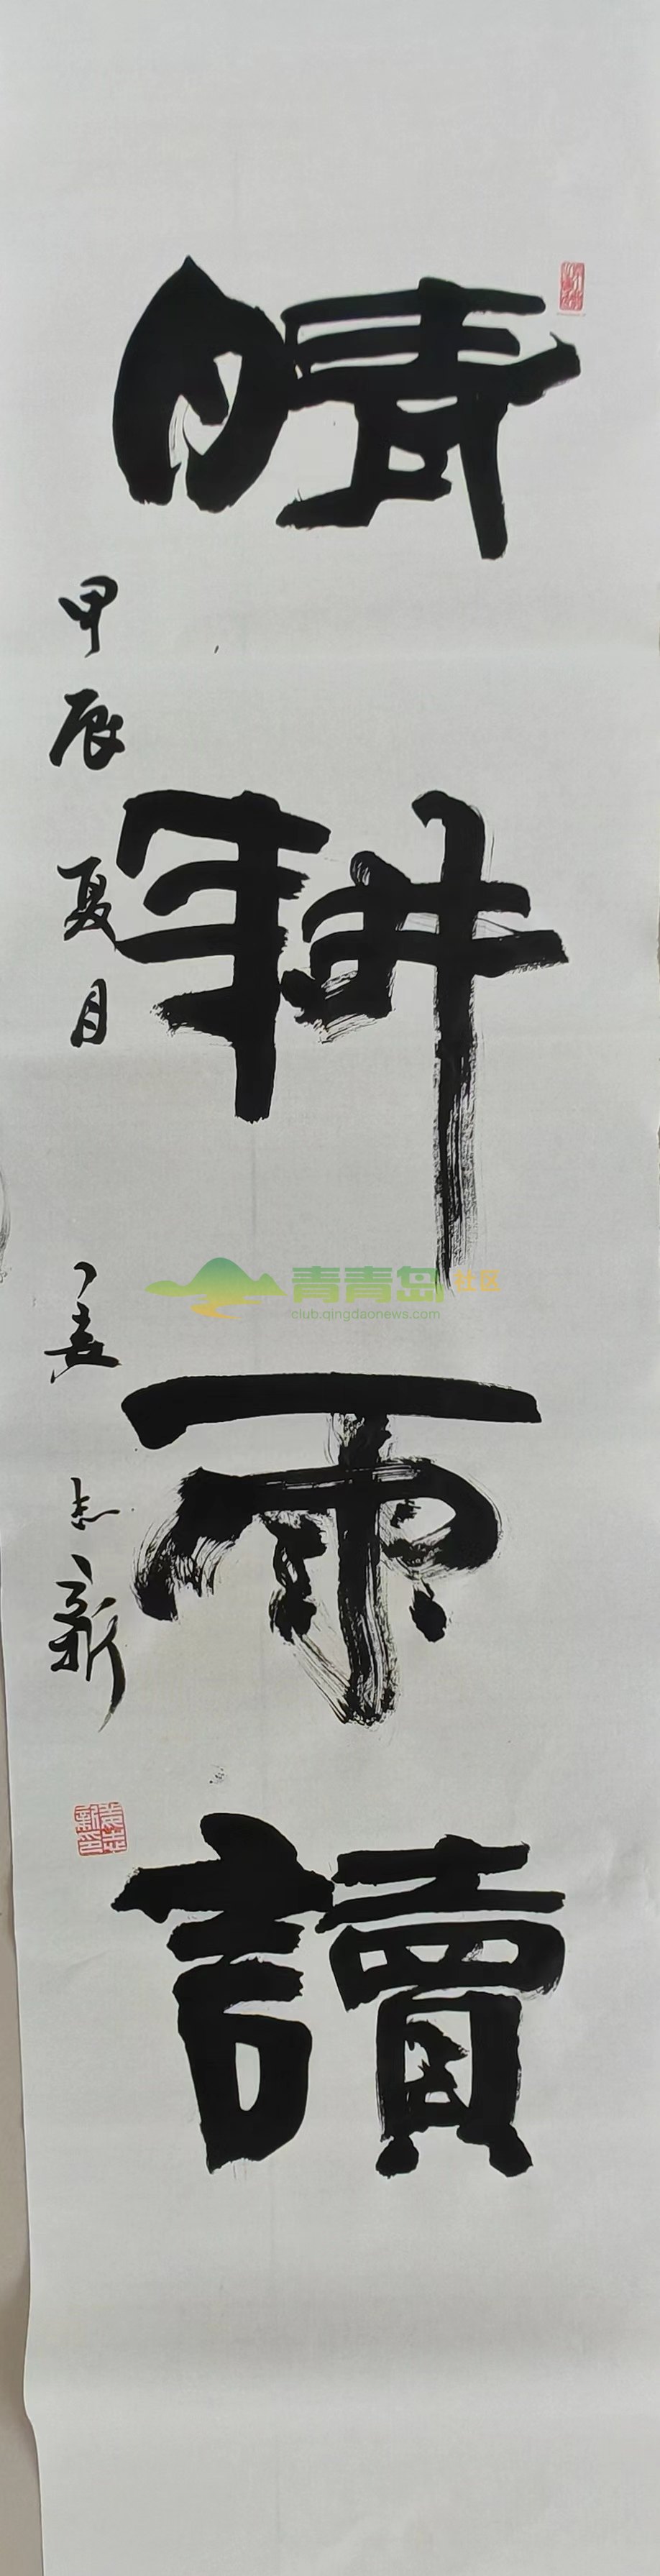 晴耕雨讀
甲辰夏月
志新
青青岛社区
club.qingdaonews.com